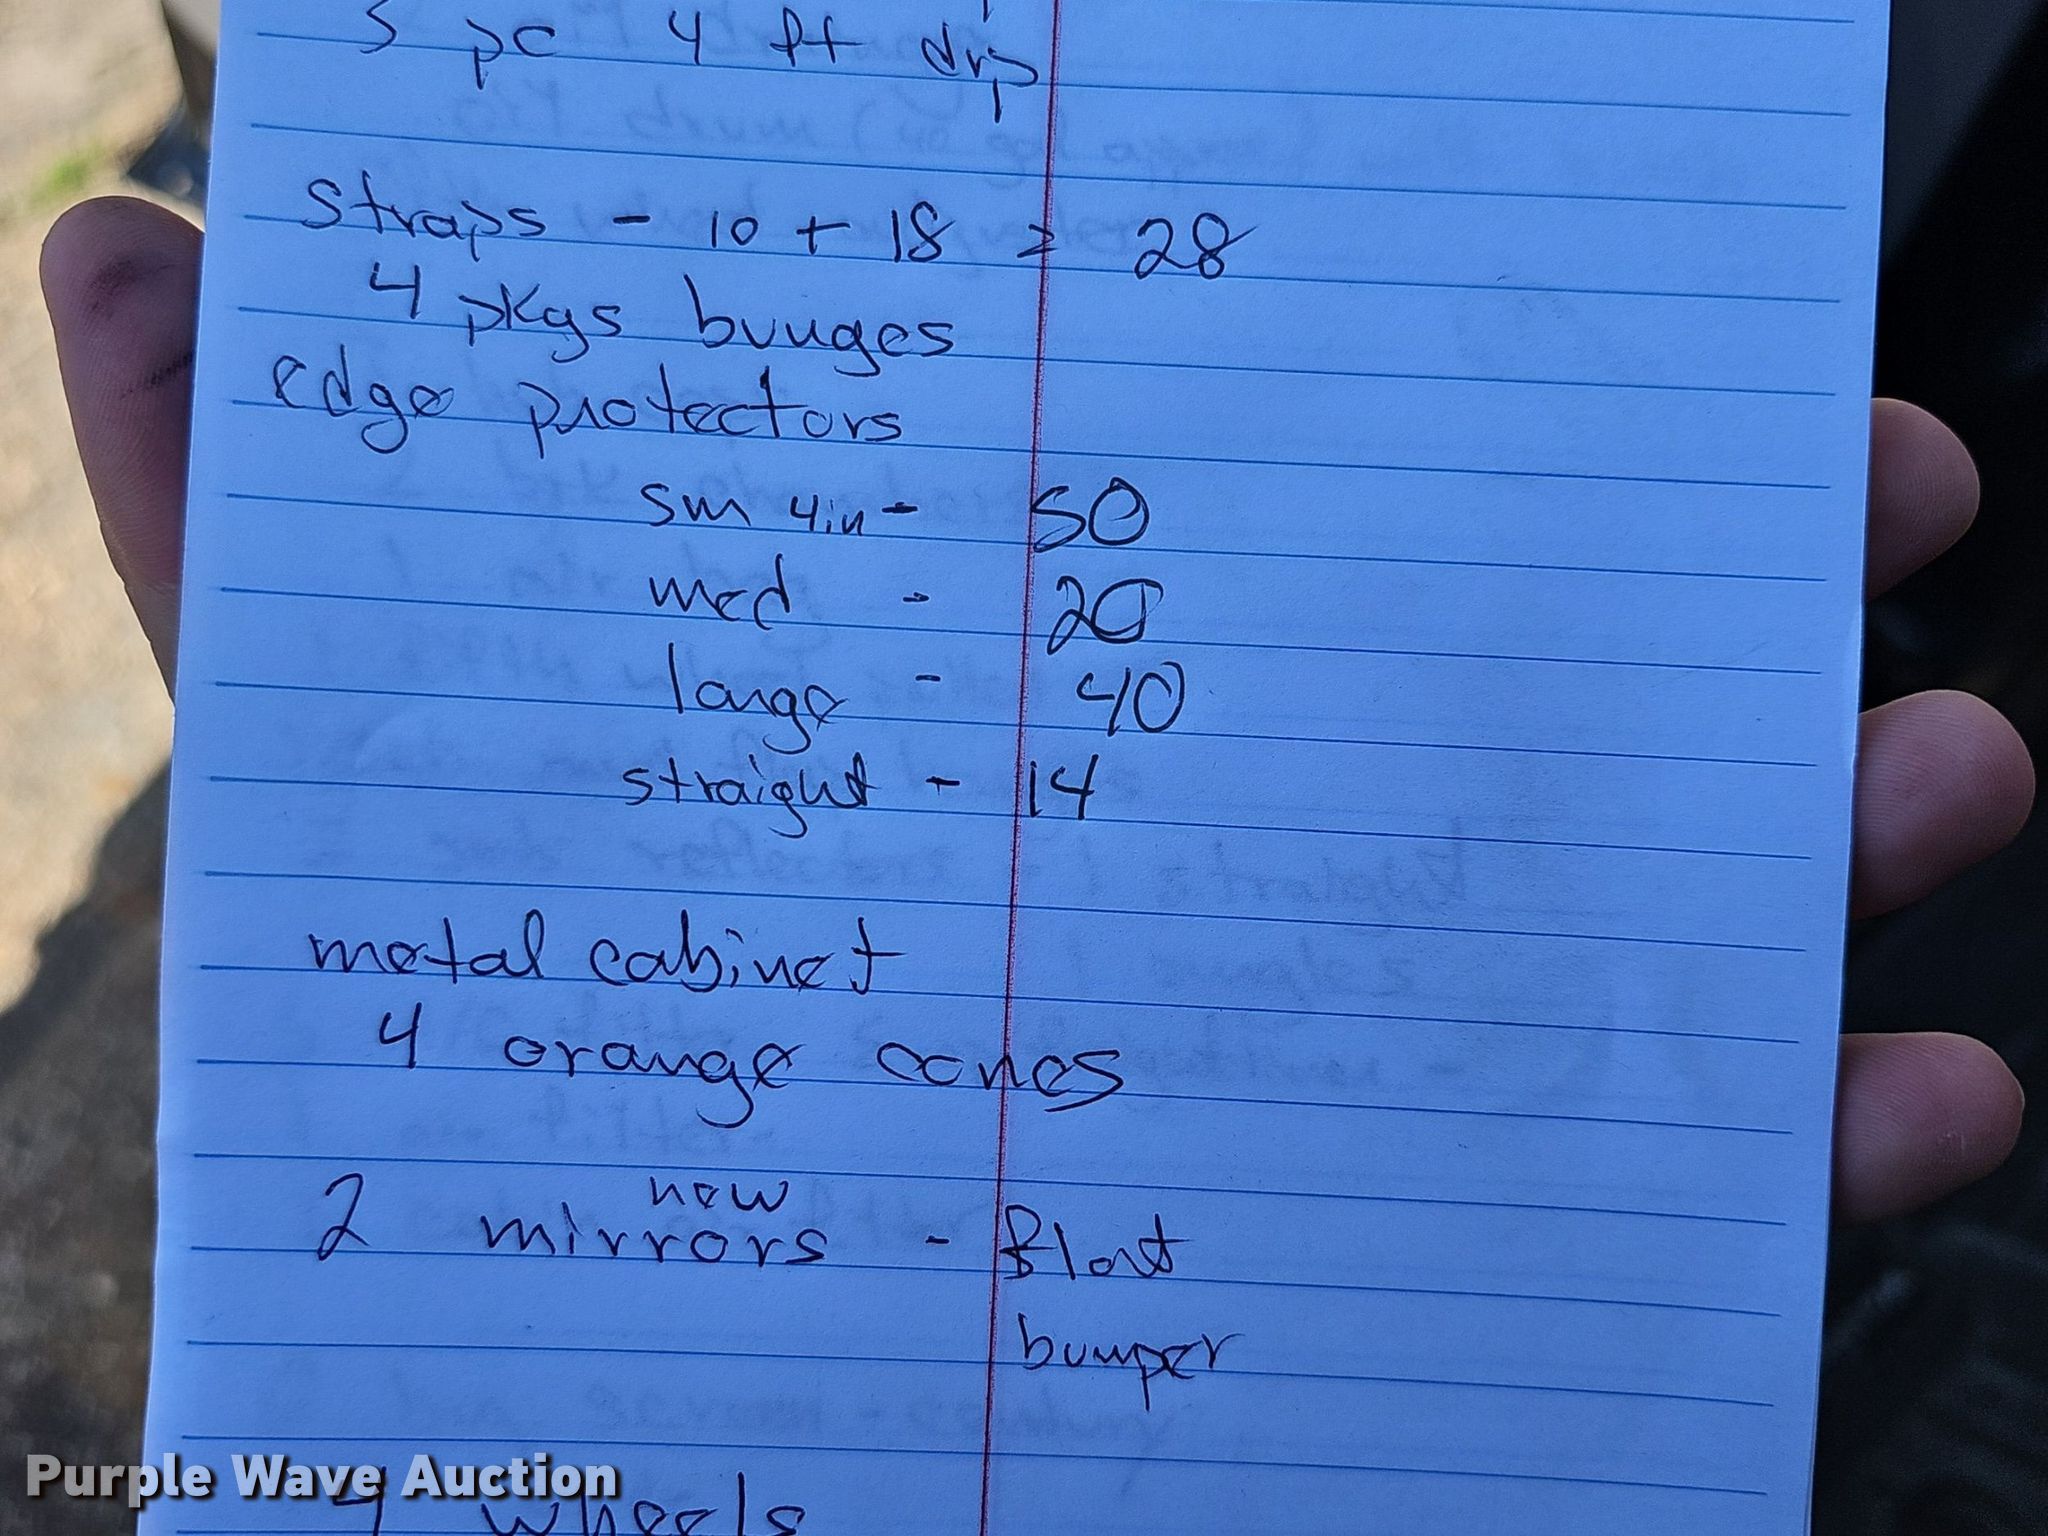 pc 4 ft drip
straps - 10 + 18 = 28
4 pkgs bunges
edge protectors
sm 4in - 50
med - 20
large - 40
straight - 14
metal cabinet
4 orange cones
new
2 mirrors - float
bumper
4 wheels
Purple Wave Auction